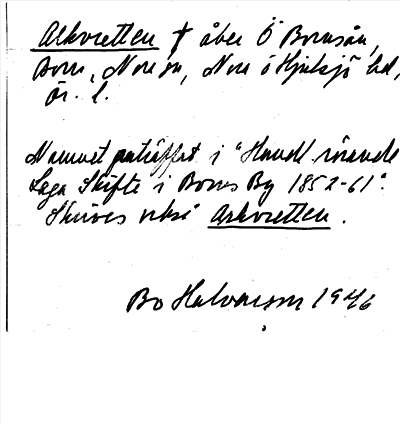 Alkvretten † åker Ö Bornsån,
Born, Nora sn, Nora o Hjulsjö hd,
Ör. l.
Namnet påträffat i "Handl rörande
Laga Skifte i Borns By 1852-61".
Skrives också Arkvretten.
Bo Halvarsson 1946